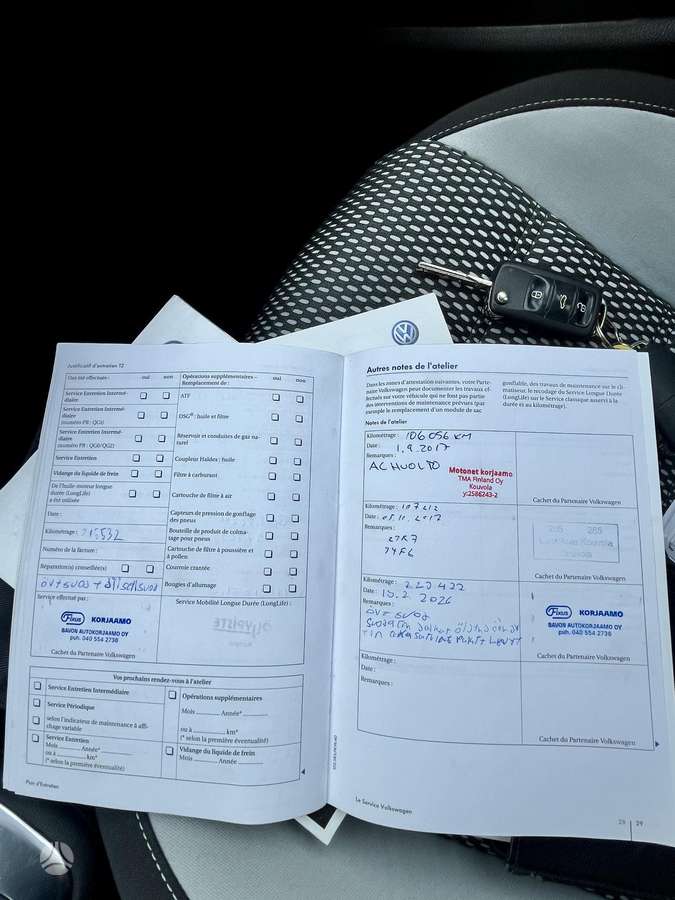 Justificatif d'entretien 12
Qui été effectués : oui non
Service Entretien Intermé-
diaire
Service Entretien Intermé-
diaire
(numéro PR : QG1)
Service Entretien Intermé-
diaire
(numéro PR : QG0/QG2)
Service Entretien
Vidange du liquide de frein
De l'huile moteur longue
durée (LongLife)
a été utilisée
Date :
Kilométrage :
Numéro de la facture :
Réparation(s) conseillée(s)
Service effectué par :
Fixus KORJAAMO
SAVON AUTOKORJAAMO OY
puh. 040 554 2736
Cachet du Partenaire Volkswagen
Opérations supplémentaires –
Remplacement de : oui non
ATF
DSG® : huile et filtre
Réservoir et conduites de gaz na-
turel
Coupleur Haldex : huile
Filtre à carburant
Cartouche de filtre à air
Capteurs de pression de gonflage
des pneus
Bouteille de produit de colma-
tage pour pneus
Cartouche de filtre à poussière et
à pollen
Courroie crantée
Bougies d'allumage
Service Mobilité Longue Durée (LongLife) :
Vos prochains rendez-vous à l'atelier
Service Entretien Intermédiaire
Service Périodique
selon l'indicateur de maintenance à affi-
chage variable
Service Entretien
Mois Année*
ou à km*
(* selon la première éventualité)
Opérations supplémentaires
Mois Année*
ou à km*
(* selon la première éventualité)
Vidange du liquide de frein
Mois Année
Plan d'Entretien
Autres notes de l'atelier
Dans les zones d'attestation suivantes, votre Parte-
naire Volkswagen peut documenter les travaux ef-
fectués sur votre véhicule qui ne font pas partie
des interventions de maintenance prévues (par
exemple le remplacement d'un module de sac
gonflable, des travaux de maintenance sur le cli-
matiseur, le recodage du Service Longue Durée
(LongLife) sur le Service classique asservi à la
durée et au kilométrage).
Notes de l'atelier
Kilométrage : 106056 KM
Date : 1.9.2017
Remarques :
AC HUOLTO
Motonet korjaamo
TMA Finland Oy
Kouvola
y:2586243-2
Cachet du Partenaire Volkswagen
Kilométrage :
Date :
Remarques :
Cachet du Partenaire Volkswagen
Kilométrage :
Date :
Remarques :
Fixus KORJAAMO
SAVON AUTOKORJAAMO OY
puh. 040 554 2736
Cachet du Partenaire Volkswagen
Kilométrage :
Date :
Remarques :
Cachet du Partenaire Volkswagen
Le Service Volkswagen
28 29